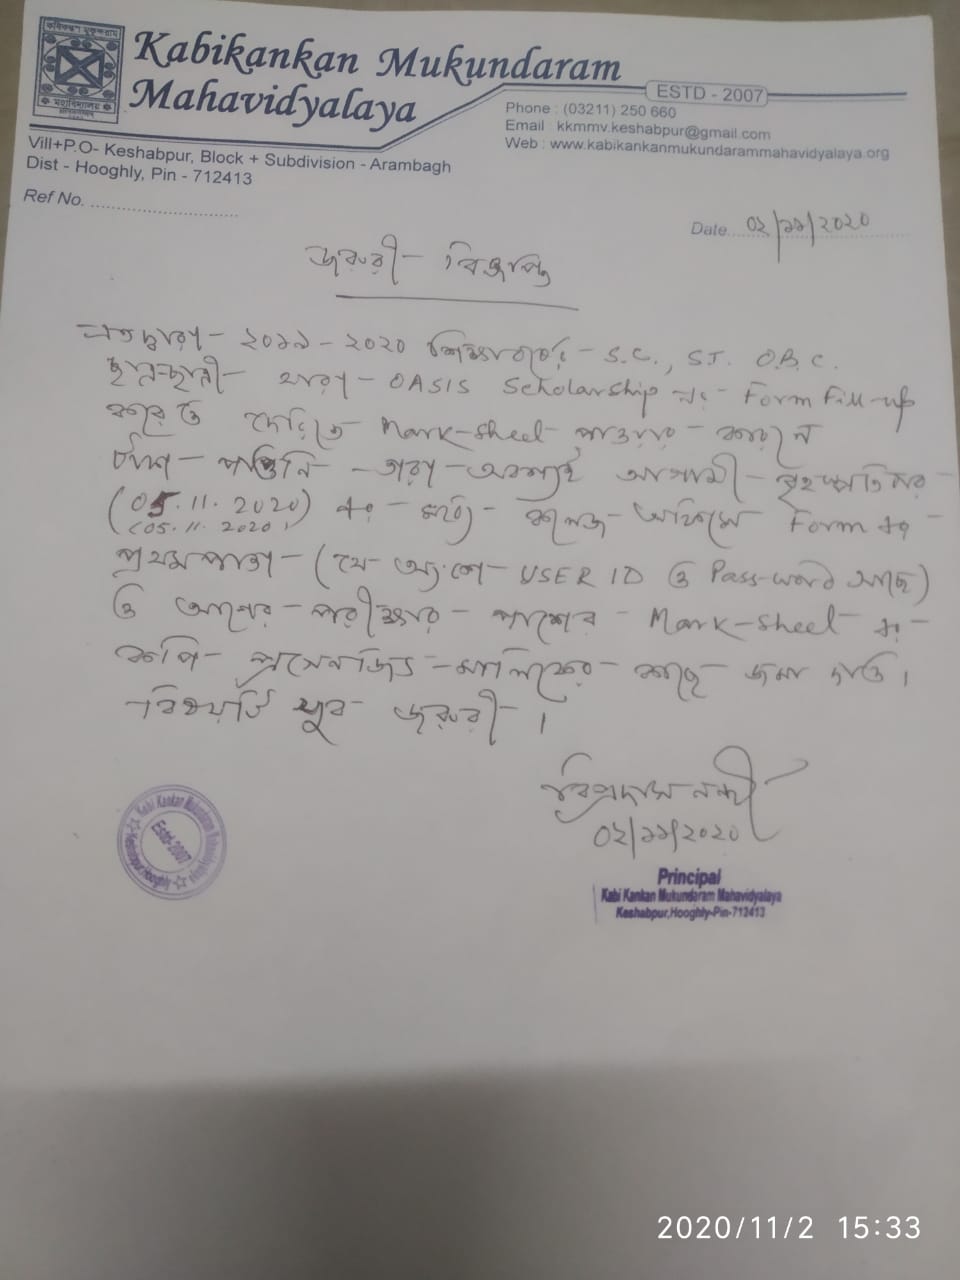 Kabikankan Mukundaram
Mahavidyalaya
ESTD - 2007
Phone : (03211) 250 660
Email : kkmmv.keshabpur@gmail.com
Web : www.kabikankanmukundarammahavidyalaya.org
Vill+P.O- Keshabpur, Block + Subdivision - Arambagh
Dist - Hooghly, Pin - 712413
Ref No. ..............................
Date.... ০২/১১/২০২০
জরুরী বিজ্ঞপ্তি
২০১৯ - ২০২০ শিক্ষাবর্ষের S.C., S.T. O.B.C.
ছাত্রছাত্রী যারা OASIS Scholarship এর Form Fill-up
করেও দেরিতে Mark-Sheel পাওয়ার কারনে
টাকা পাওনি তারা অবশ্যই আগামী বৃহস্পতিবার
(05.11.2020) এর মধ্যে কলেজ অফিসে Form এর
(05.11.2020)
প্রথমপাতা (যে অংশে USER ID ও Pass-word আছে)
ও আগের পরীক্ষার পাশের Mark-Sheel এর
কপি প্রসেনজিৎ মালিকের কাছে জমা দাও।
বিষয়টি খুব জরুরী।
বিপ্রদাস নন্দী
০২/১১/২০২০
Principal
Kabi Kankan Mukundaram Mahavidyalaya
Keshabpur,Hooghly-Pin-712413
Kabi Kankan Mukundaram Mahavidyalaya
Estd-2007
Keshabpur, Hooghly
2020/11/2 15:33